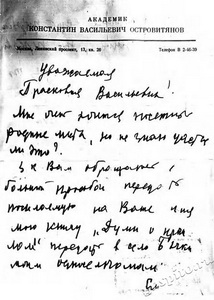 АКАДЕМИК
КОНСТАНТИН ВАСИЛЬЕВИЧ ОСТРОВИТЯНОВ
Москва, Ленинский проспект, 13, кв. 20 Телефон В 2-46-39
Уважаемая
Прасковья Васильевна!
Мне очень хочется посетить
родные места, но не знаю удастся
ли это?
Я к Вам обращаюсь с
большой просьбой передать
посылаемую на Ваше имя
мою книгу „Думы о прошлом"
передать в село
моим односельчанам